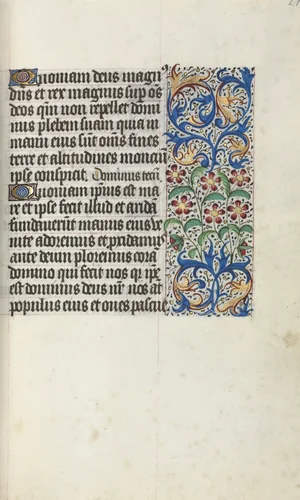 Quoniam deus magnꝰ
dñs et rex magnus sup oẽs
deos qm̃ non repellet domi
nus plebem suam quia in
manu eius sunt om̃s fines
terre et altitudines monciũ
ipse conspicit. Dominus tecũ
Quoniam ipsius est ma
re et ipse fecit illud et aridã
fundauerũt manus eius ve
nite adoremus et procidamꝰ
ante deum ploremus corã
domino qui fecit nos qr ipe
est dominus deus nr̃ nos aũt
populus eius et oues pascue